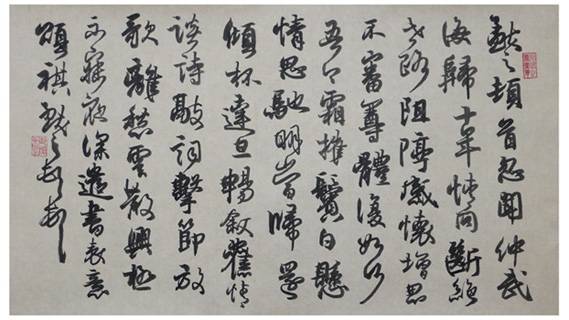 之頓首忽聞仲武
海歸十年情同斷絶
路阻障感懷增思
不審尊體復如何
吾霜摧鬢白懸
情思馳明當帰
傾杯達旦暢敘舊情
談詩敲詞擊節放
歌離愁雲散興極
不寐夜深遣書表意
頌祺